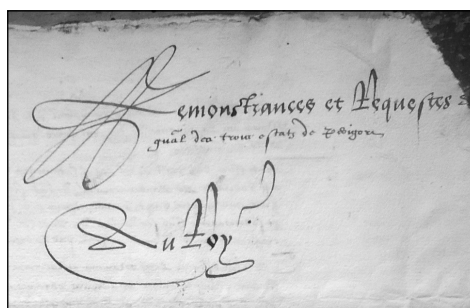 Remonstrances et Requestes d
gnãl des trois estatz de Perigort
Au Roy